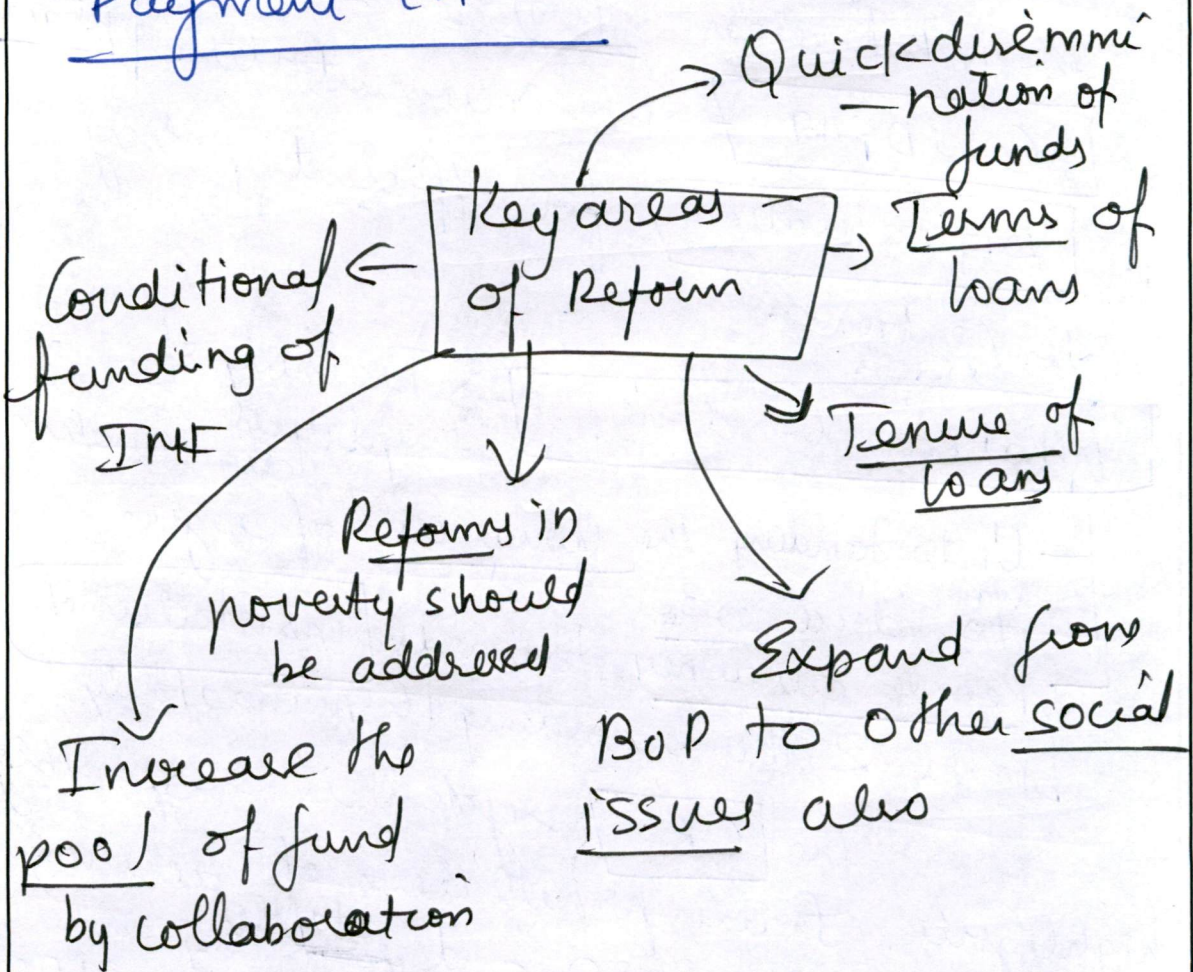 Payment
Quick disemmi
nation of
funds
Key areas
of Reform
Terms of
loans
Conditional
funding of
IMF
Tenure of
loans
Reforms in
poverty should
be addressed
Expand from
BOP to other social
issues also
Increase the
pool of fund
by collaboration